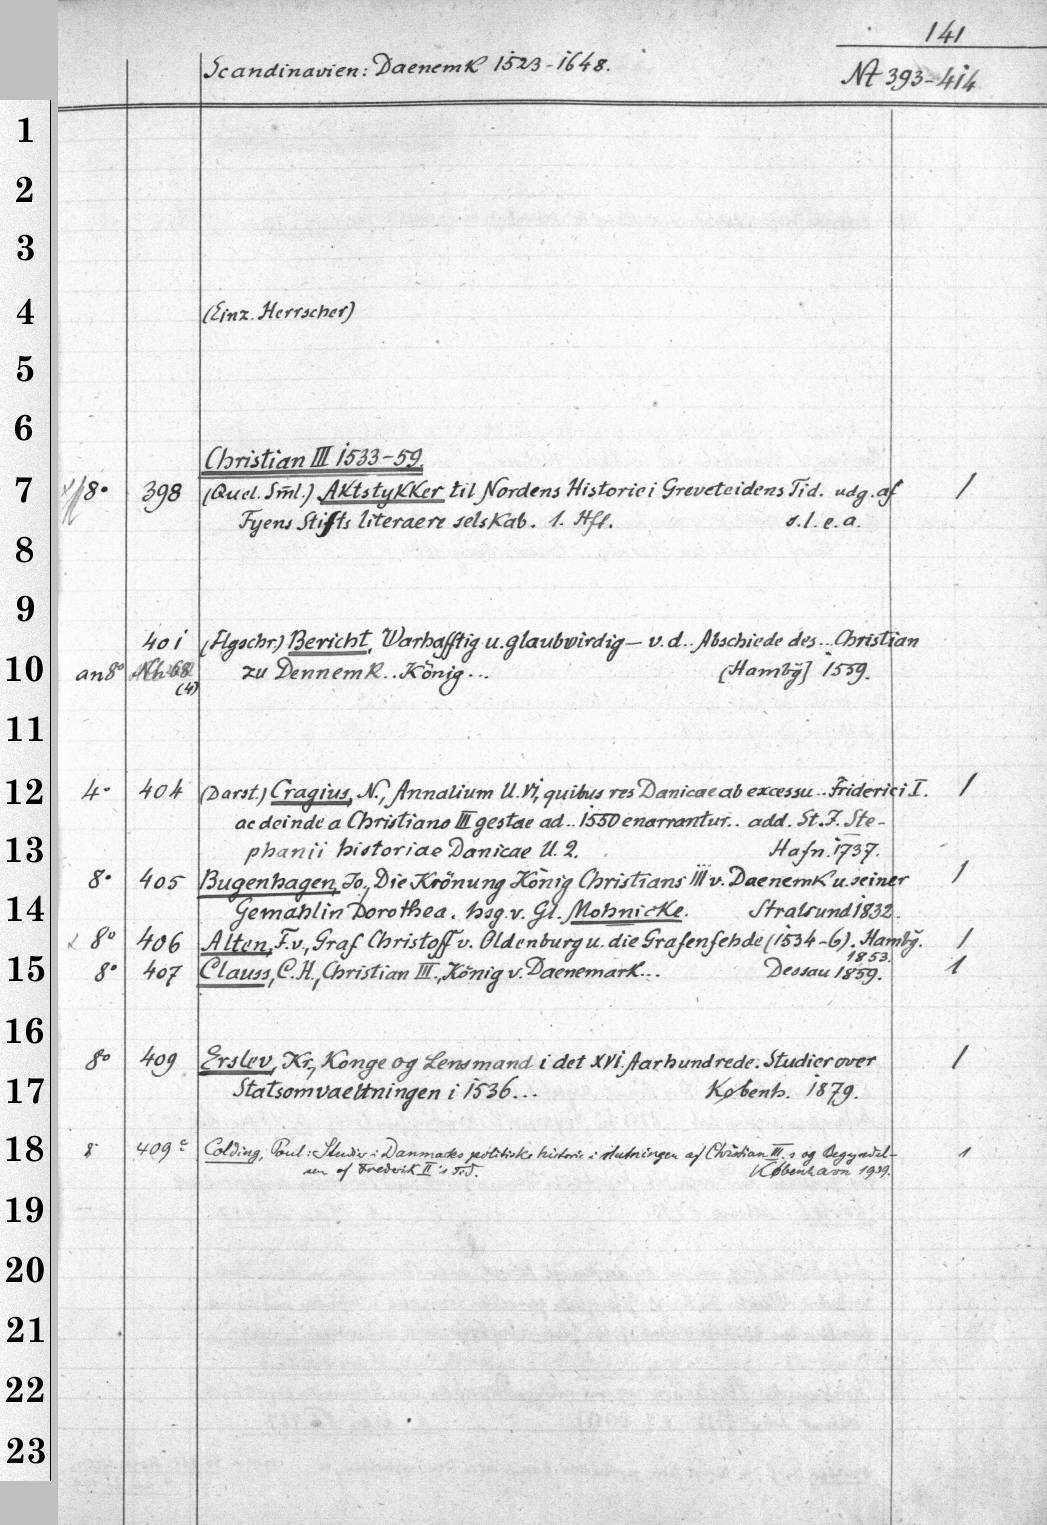 141
Scandinavien: Daenemk 1523-1648.
Nt 393-414
1
2
3
4 (Einz. Herrscher)
5
6
Christian III 1533-59.
7 8° 398 (Quel. Sml.) Aktstykker til Nordens Historie i Greveteidens Tid. udg. af /
Fyens Stifts literaere selskab. 1. Hft. s.l.e.a.
8
9
401 (Flgschr.) Bericht, Warhafftig u. glaubwirdig — v. d.. Abschiede des... Christian
10 an 8° Nh 68 zu Dennemk.. König... [Hambg] 1559.
(4)
11
12 4° 404 (Darst.) Cragius, N., Annalium ll. VI, quibus res Danicae ab excessu.. Friderici I. /
ac deinde a Christiano III gestae ad.. 1550 enarrantur.. add. St. J. Ste-
13 phanii historiae Danicae ll. 2. Hafn. 1737.
8° 405 Bugenhagen, Jo., Die Krönung König Christians III v. Daenemk u. seiner /
14 Gemahlin Dorothea. hsg. v. Gl. Mohnicke. Stralsund 1832.
8° 406 Alten, F. v., Graf Christoff v. Oldenburg u. die Grafenfehde (1534-6). Hambg. /
1853.
15 8° 407 Clauss, C. H., Christian III., König v. Daenemark... Dessau 1859. 1
16
8° 409 Erslev, Kr., Konge og Lensmand i det XVI. Aarhundrede. Studier over /
17 Statsomvaeltningen i 1536... Københ. 1879.
18 8 409 c Colding, Poul: Studier i Danmarks politiske historie i slutningen af Christian III.s og Begyndel- 1
sen af Frederik II's Tid. København 1939.
19
20
21
22
23